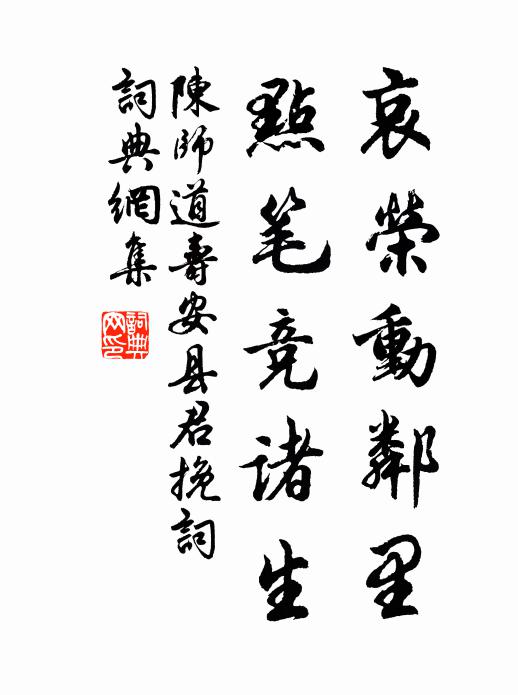 哀榮動鄰里
點笔竞诸生
陳師道壽安县君挽詞
詞典網集
詞典网印